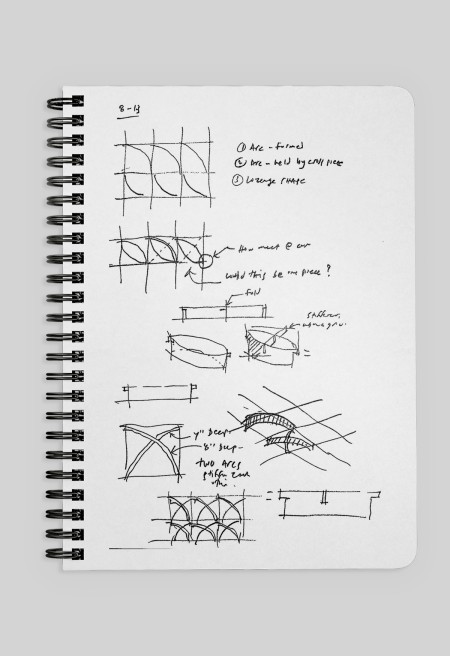 8-13
① Arc - formed
② Arc - held by end piece
③ Lozenge shape
How meet @ cor
would this be one piece?
fold
stiffener
4" Deep
8" Deep -
TWO ARCS
stiffen each